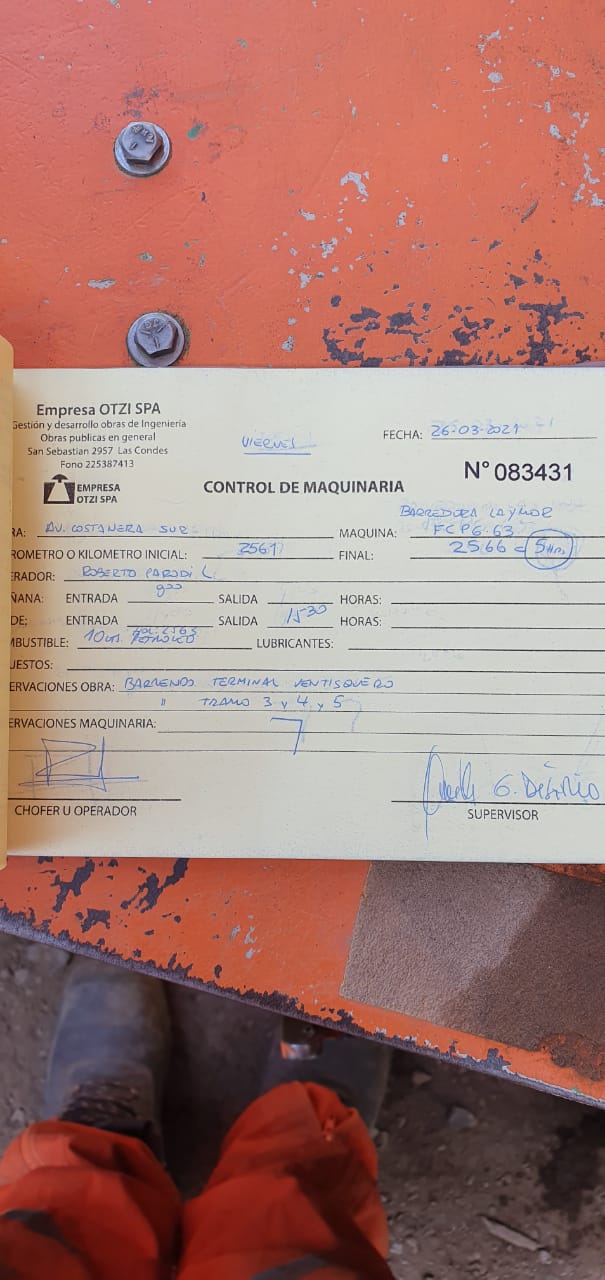 Empresa OTZI SPA
Gestión y desarrollo obras de Ingeniería
Obras publicas en general
San Sebastian 2957 Las Condes
Fono 225387413
EMPRESA
OTZI SPA
VIERNES
FECHA: 26-03-2021
N° 083431
CONTROL DE MAQUINARIA
BARREDORA LAYMOR
RA: AV. COSTANERA SUR MAQUINA: FCPG-63
ROMETRO O KILOMETRO INICIAL: 2561 FINAL: 2566 = 5 Hrs
ERADOR: ROBERTO PARODI L
ÑANA: ENTRADA 900 SALIDA HORAS:
DE; ENTRADA SALIDA 1530 HORAS:
MBUSTIBLE: 10 Lts. PETROLEO LUBRICANTES:
UESTOS:
ERVACIONES OBRA: BARRENOS TERMINAL VENTISQUERO
" TRAMO 3 y 4 y 5
ERVACIONES MAQUINARIA:
CHOFER U OPERADOR
SUPERVISOR